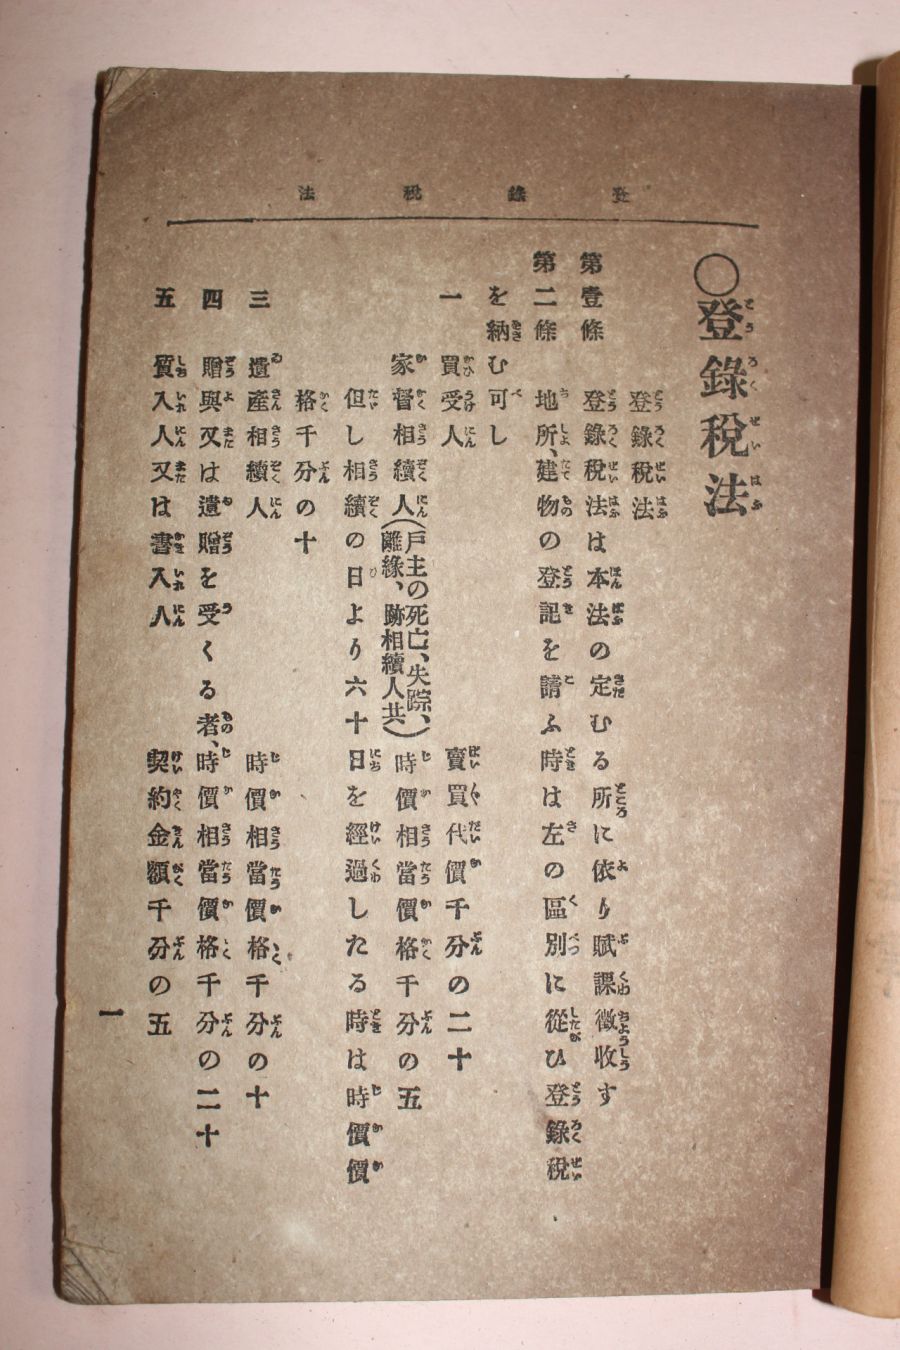 登錄稅法
〇登錄稅法
登錄稅法
第壹條　登錄稅法は本法の定むる所に依り賦課徵收す
第二條　地所、建物の登記を請ふ時は左の區別に從ひ登錄稅
を納む可し
一　買受人　賣買代價千分の二十
家督相續人（戶主の死亡、失踪、離緣、跡相續人共）時價相當價格千分の五
但し相續の日より六十日を經過したる時は時價價
格千分の十
三　遺產相續人　時價相當價格千分の十
四　贈與又は遺贈を受くる者、時價相當價格千分の二十
五　質入人又は書入人　契約金額千分の五
一